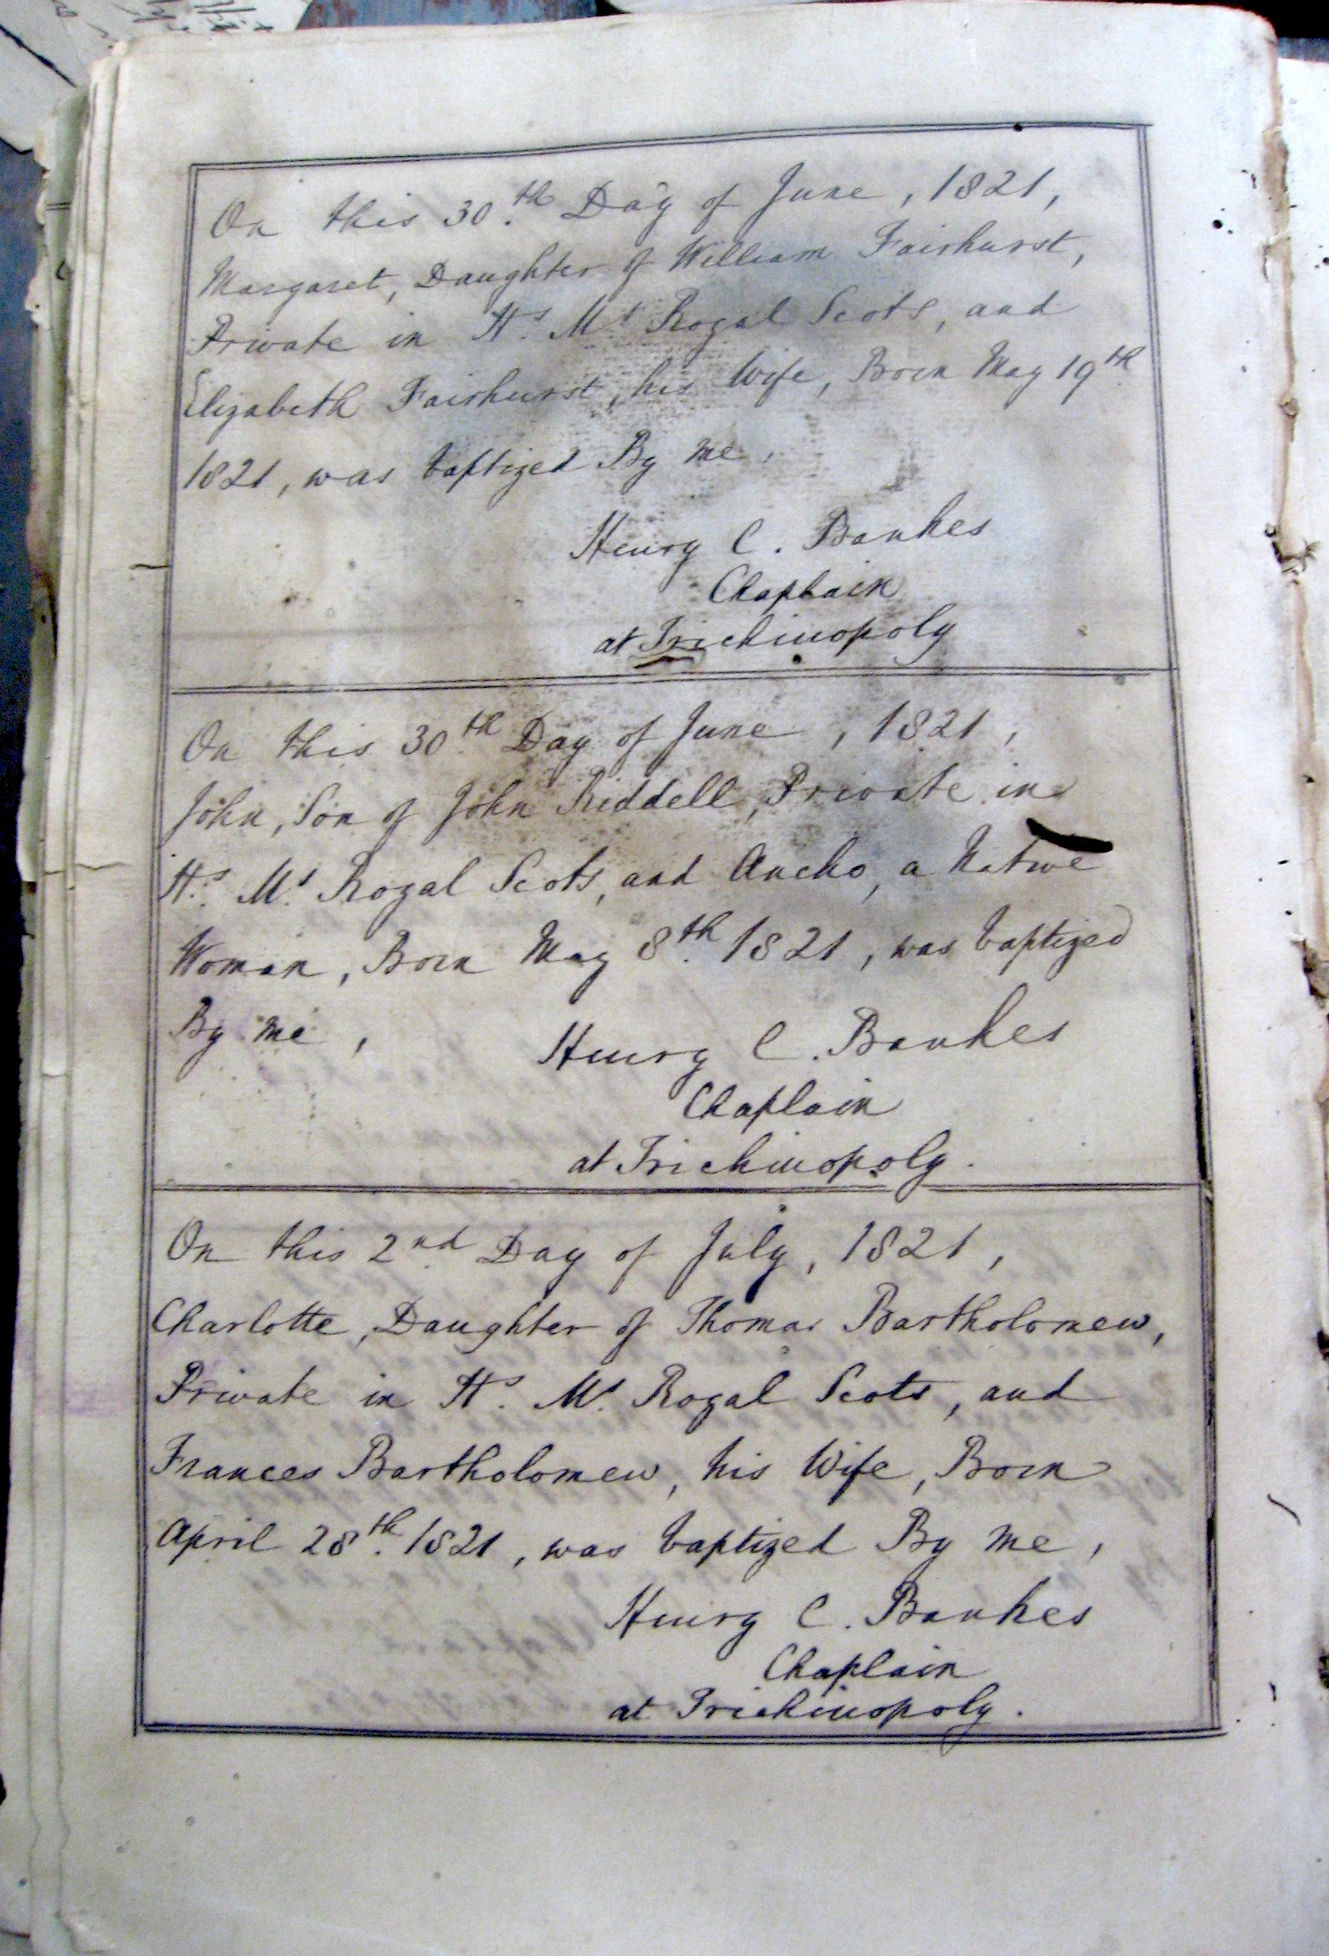 On this 30.th Day of June, 1821,
Margaret, Daughter of William Fairhurst,
Private in H.s M.s Royal Scots, and
Elizabeth Fairhurst, his Wife, Born May 19th
1821, was baptized By me,
Henry C. Bankes
Chaplain
at Trichinopoly
On this 30.th Day of June, 1821,
John, Son of John Riddell, Private in
H.s M.s Royal Scots, and Ancho, a Native
Woman, Born May 8.th 1821, was baptized
By me,
Henry C. Bankes
Chaplain
at Trichinopoly.
On this 2.nd Day of July, 1821,
Charlotte, Daughter of Thomas Bartholomew,
Private in H.s M.s Royal Scots, and
Frances Bartholomew, his Wife, Born
April 28.th 1821, was baptized By me,
Henry C. Bankes
Chaplain
at Trichinopoly.